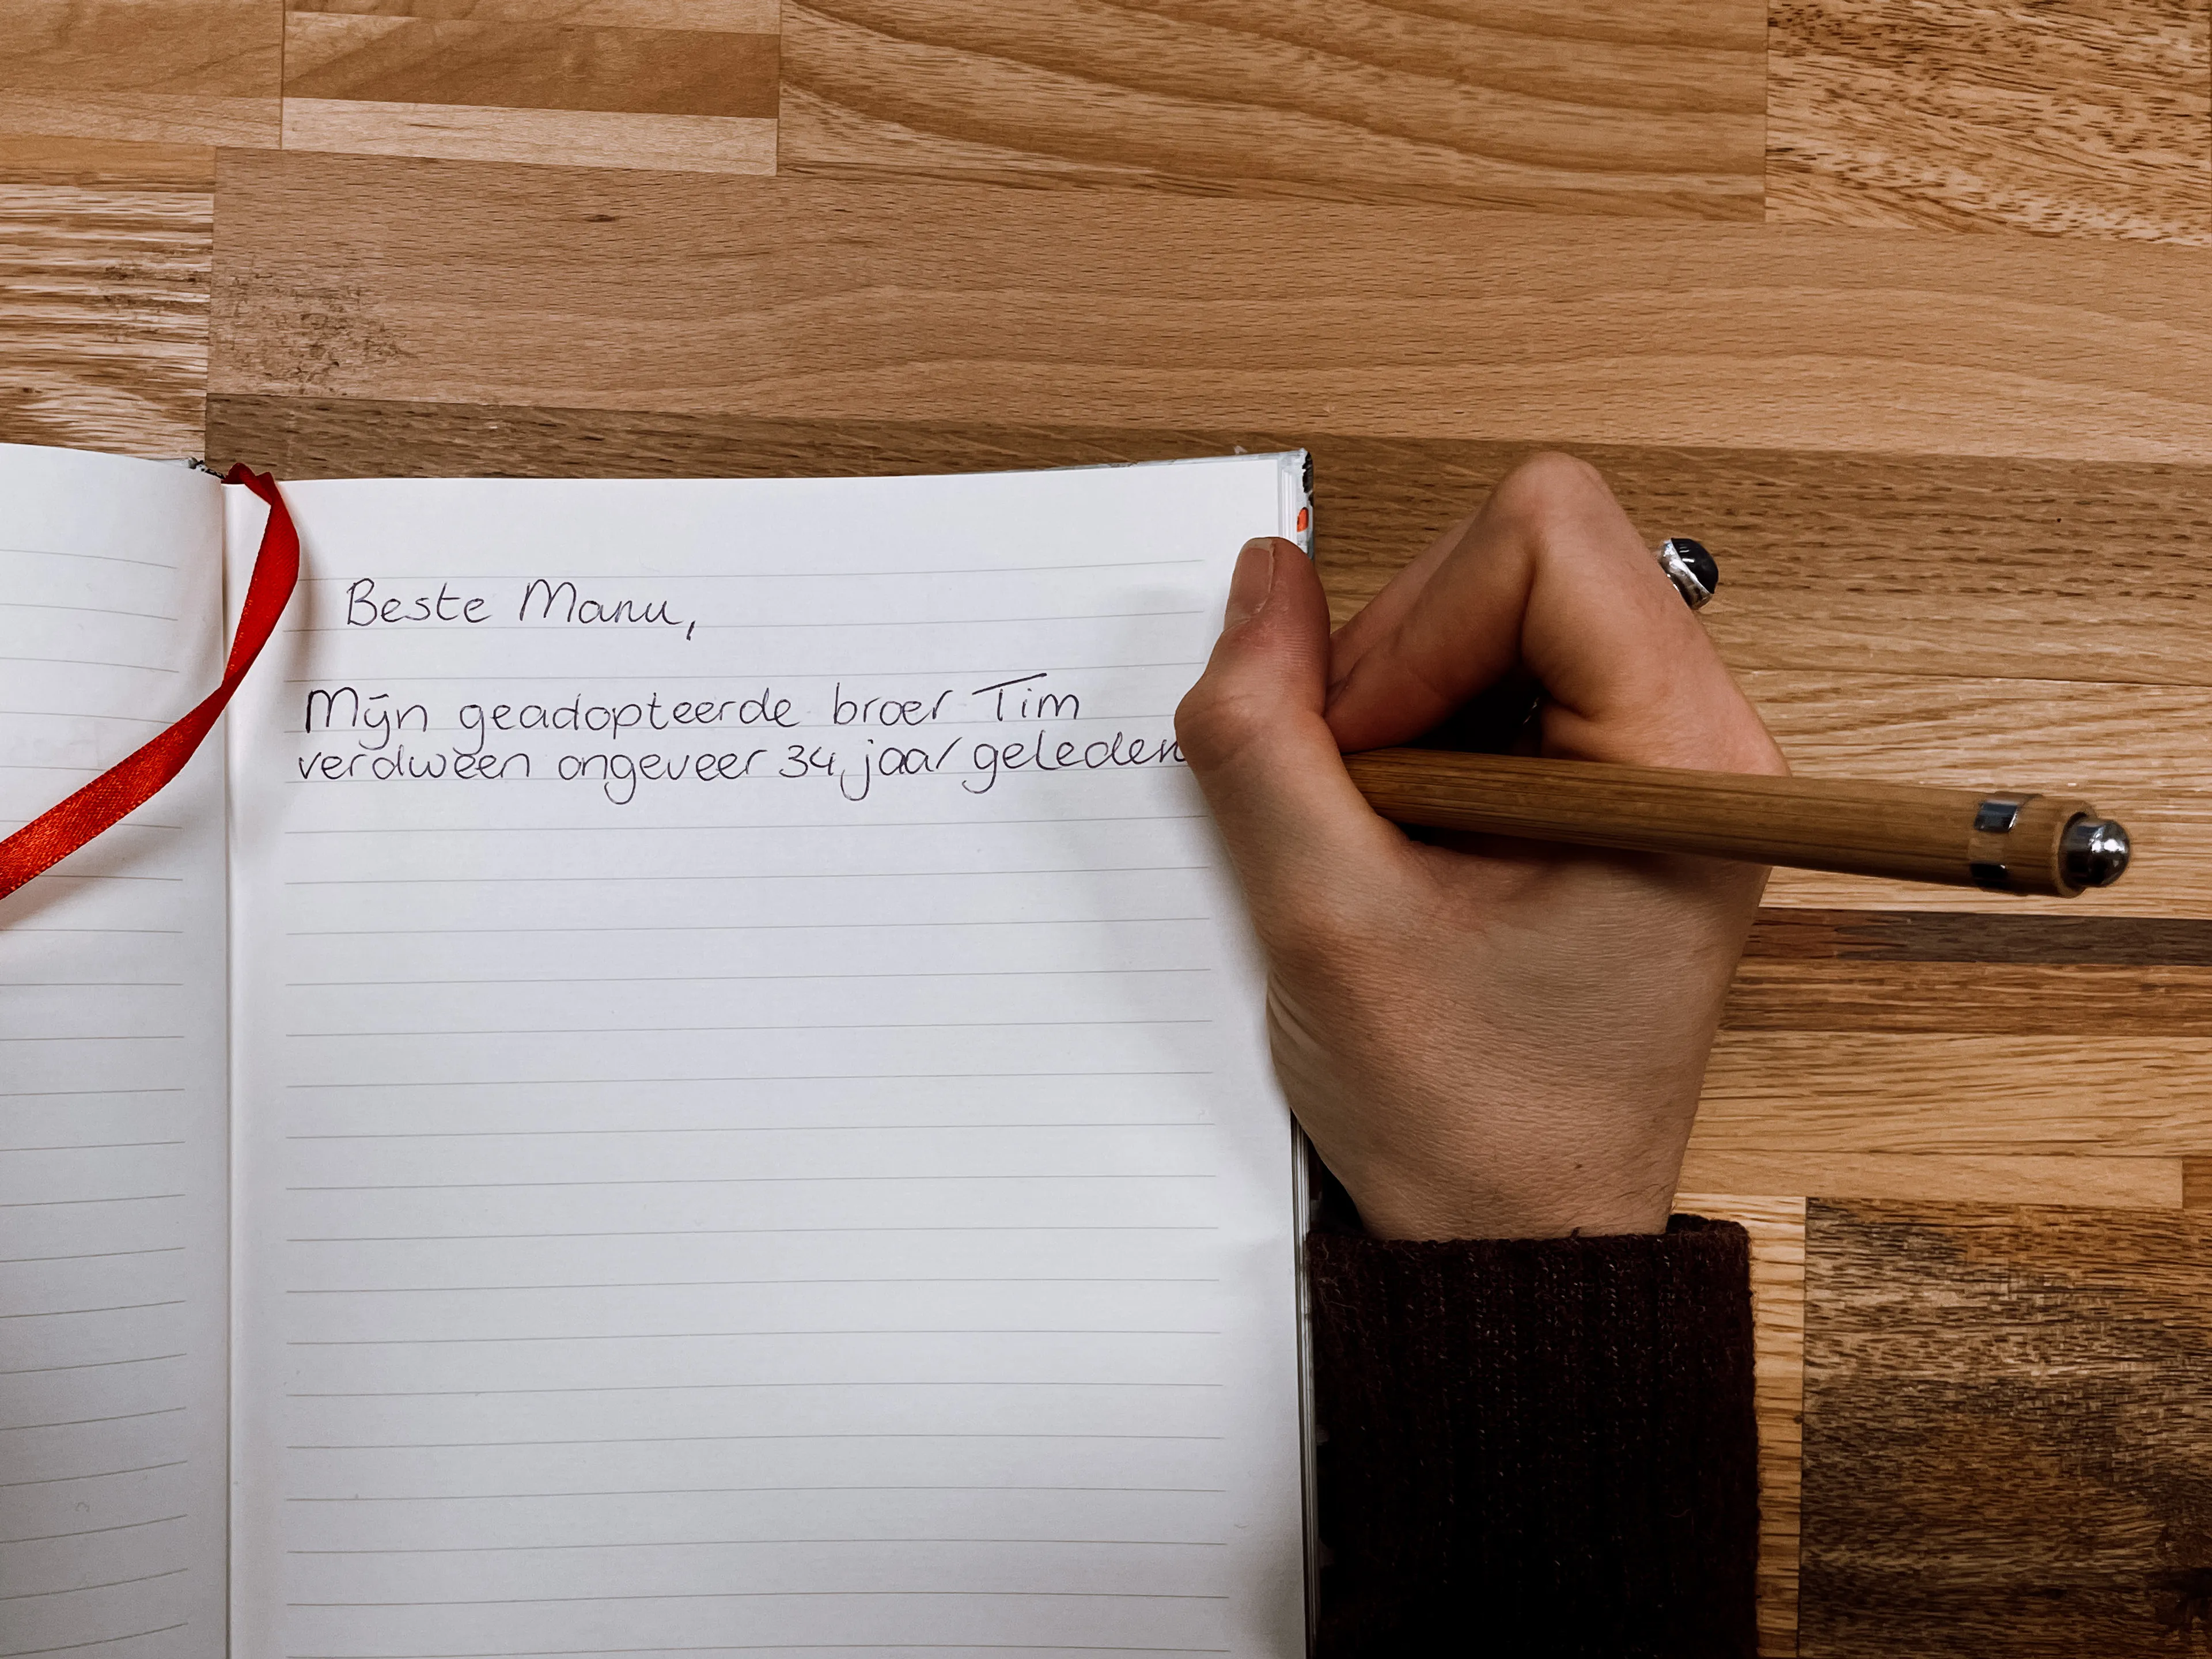 Beste Manu,
Mijn geadopteerde broer Tim
verdween ongeveer 34 jaar geleden